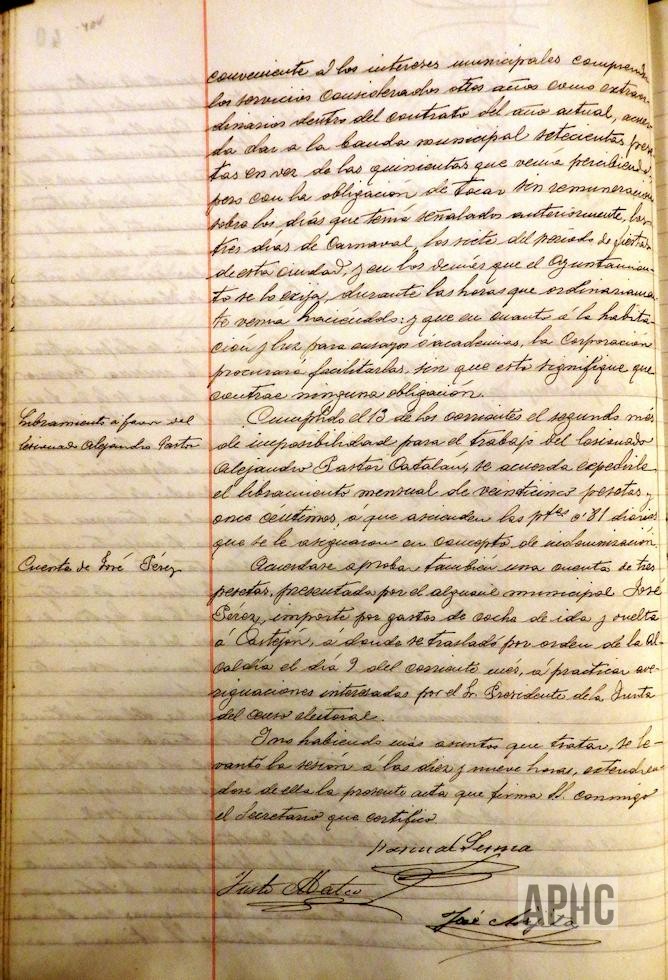 conveniente á los intereses municipales comprender
los servicios considerados otros años como extraor-
dinarios dentro del contrato del año actual, acuer-
da dar a la banda municipal setecientas pese-
tas en vez de las quinientas que venía percibiendo,
pero con la obligacion de tocar sin remuneracion
sobre los días que tenía señalados anteriormente, los
tres días de Carnaval, los siete del periodo de fiestas
de esta ciudad, y en los demás que el Ayuntamien-
to se lo exija, durante las horas que ordinariamen-
te venía haciéndolo; y que en cuanto á la habita-
ción y luz para ensayos ó academias, la Corporacion
procurará facilitarlas, sin que esto signifique que
contrae ninguna obligación.
Libramiento á favor del
lesionado Alejandro Pastor
Cumplido el 13 de los corrientes el segundo mes
de imposibilidad para el trabajo del lesionado
Alejandro Pastor Catalan, se acuerda expedirle
el libramiento mensual de veinticinco pesetas y
once céntimos, á que ascienden las ptas 0'81 diarias
que se le asignaron en concepto de indemnización.
Cuenta de José Pérez
Acuérdase aprobar tambien una cuenta de tres
pesetas, presentada por el alguacil municipal José
Pérez, importe por gastos de coche de ida y vuelta
á Castejón, á donde se trasladó por orden de la Al-
caldía el día 9 del corriente mes, á practicar ave-
riguaciones interesadas por el Sr. Presidente de la Junta
del censo electoral.
Y no habiendo más asuntos que tratar, se le-
vantó la sesión á las diez y nueve horas, extendién-
dose de ella la presente acta que firma SS. conmigo
el Secretario que certifico.
Pascual Serma
Justo Mateo
José
APHC